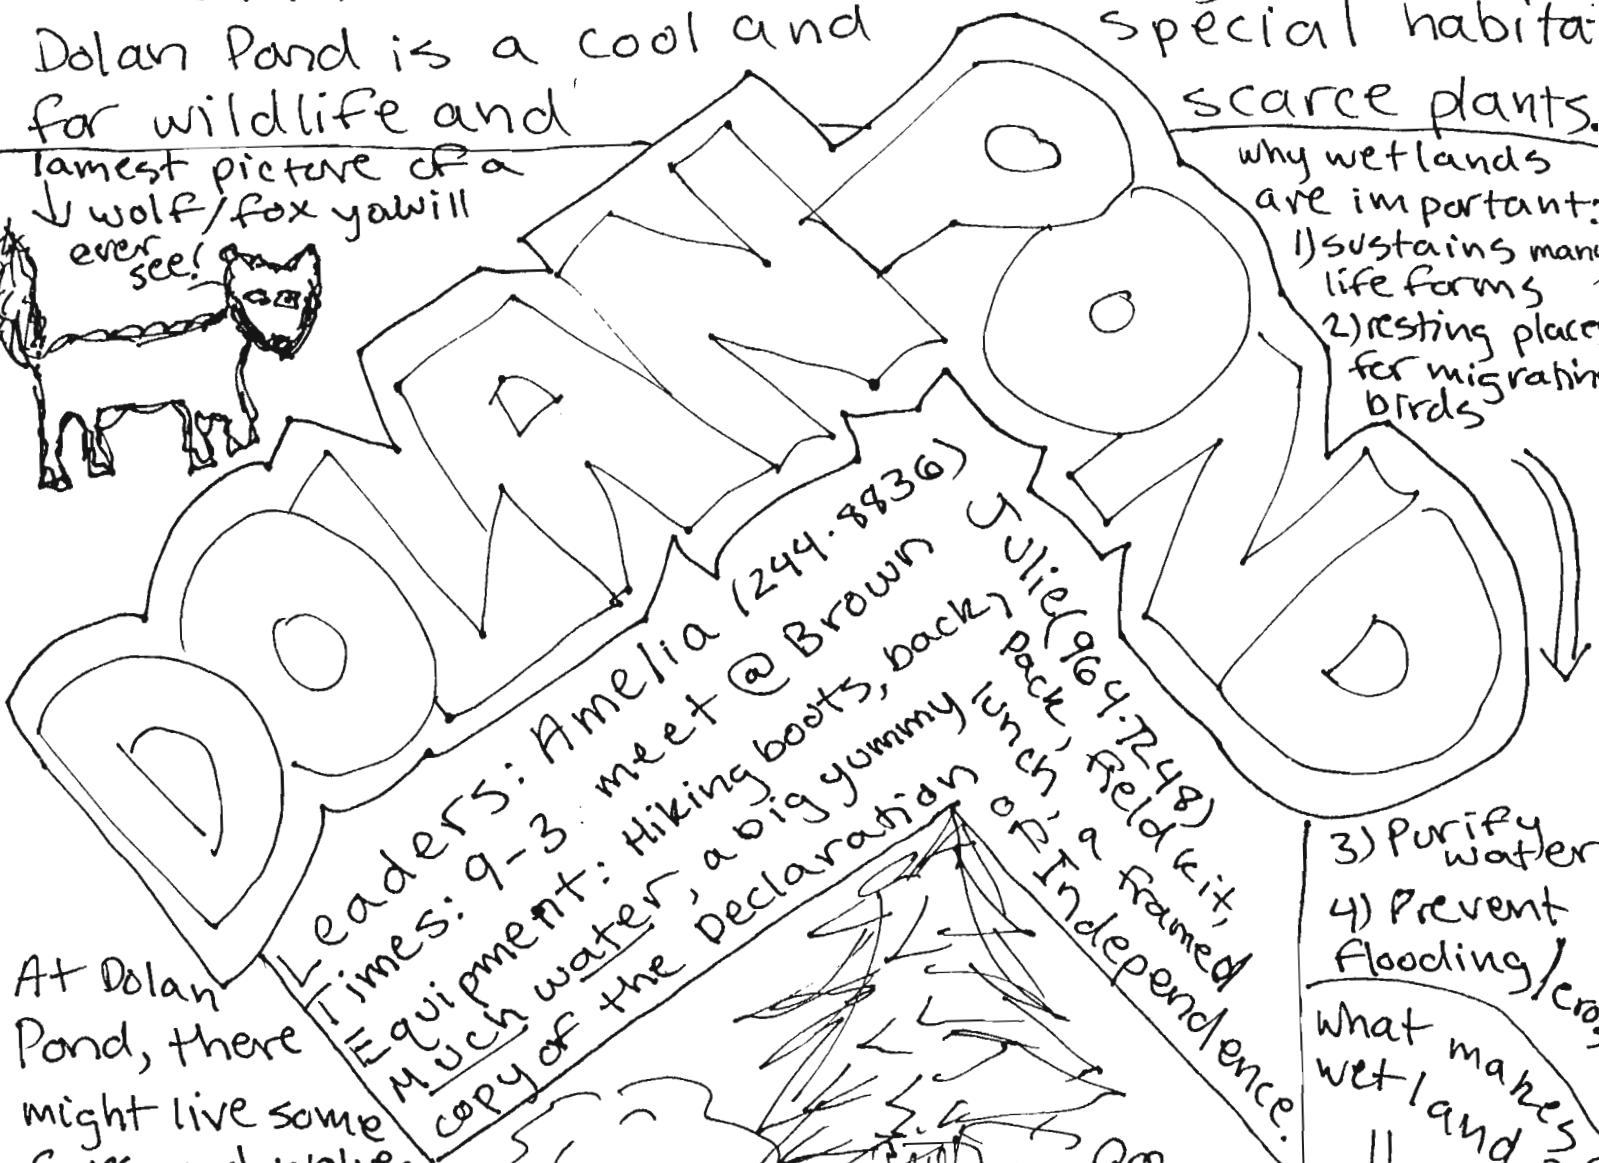 Dolan Pond is a cool and special habita
for wildlife and scarce plants.
lamest picture of a
wolf/fox ya will
ever
see!
DOLAN POND
why wetlands
are important:
1) sustains man
life forms
2) resting place
for migratin
birds
3) Purify
water
4) Prevent
flooding/ero
what makes
wetland
Leaders: Amelia (244.8836) Julie (964.7248)
Times: 9-3 meet @ Brown
Equipment: Hiking boots, back pack, field kit,
Much water, a big yummy lunch, a framed
copy of the Declaration of Independence.
At Dolan
Pond, there
might live some